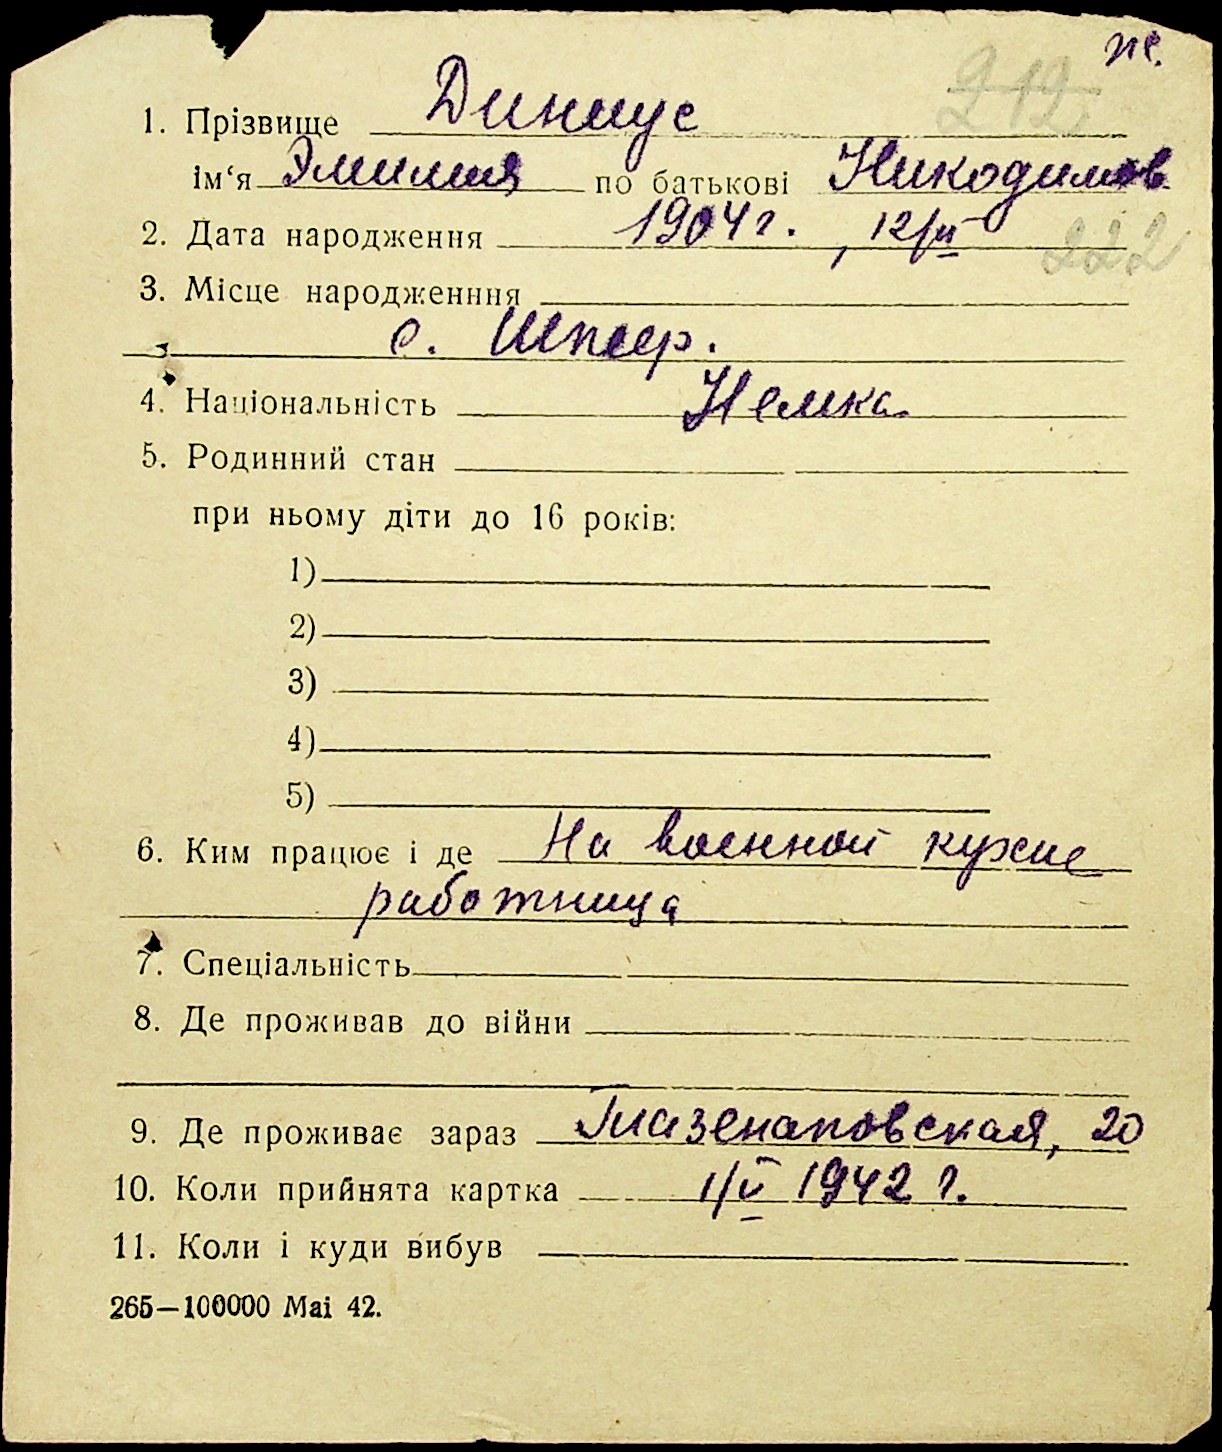 же.
212
1. Прізвище Диниус
ім‘я Эмилия по батькові Никодимов
2. Дата народження 1904 г. , 12/III
222
3. Місце народженння
с. Шпеер.
4. Національність Немка
5. Родинний стан
при ньому діти до 16 років:
1)
2)
3)
4)
5)
6. Ким працює і де На военной кухне
работница
7. Спеціальність
8. Де проживав до війни
9. Де проживає зараз Глазенаповская, 20
10. Коли прийнята картка 1/V 1942 г.
11. Коли і куди вибув
265—100000 Mai 42.